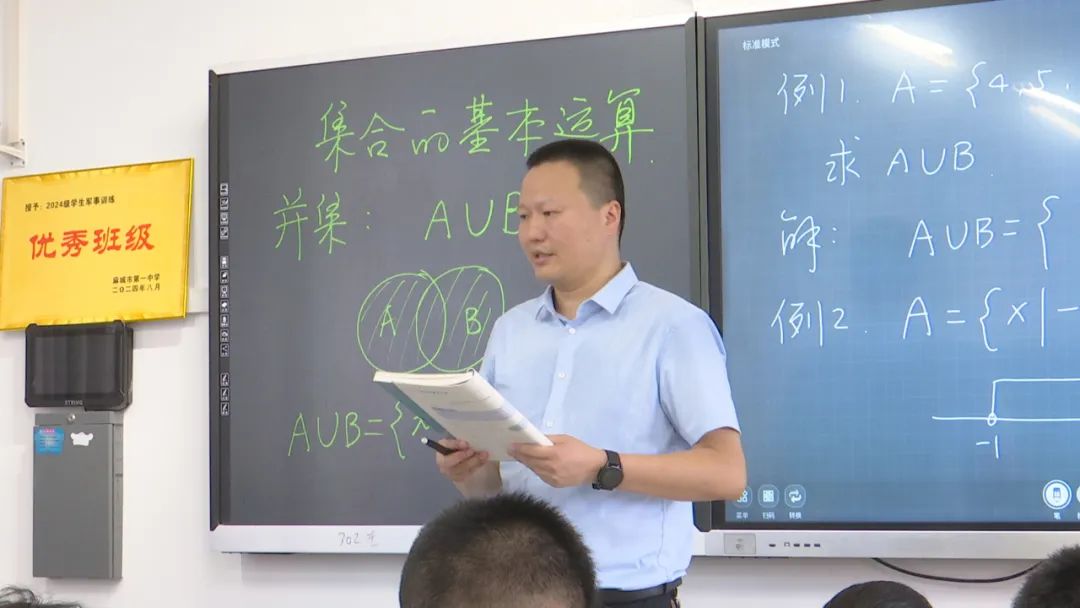 授予：2024级学生军事训练
优秀班级
麻城市第一中学
二〇二四年八月
集合的基本运算.
并集： A∪B
A B
A∪B={x
702
标准模式
例1. A={4,5,
求 A∪B.
解： A∪B={
例2. A={x|-
-1
菜单 扫码 转换 笔